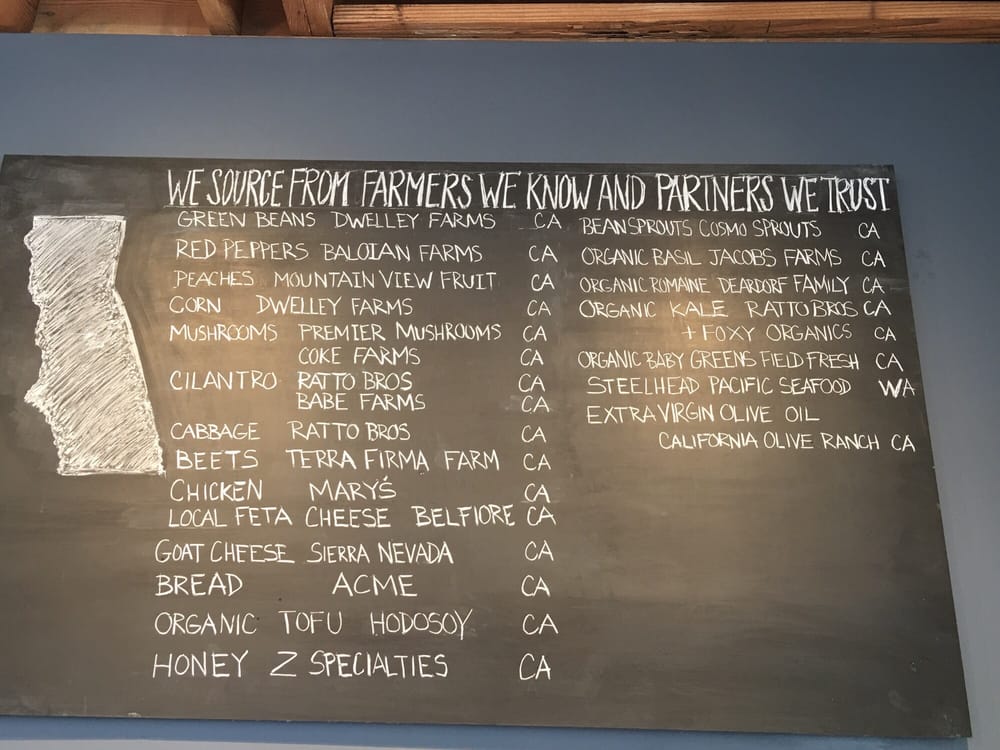 WE SOURCE FROM FARMERS WE KNOW AND PARTNERS WE TRUST
GREEN BEANS DWELLEY FARMS CA
RED PEPPERS BALOIAN FARMS CA
PEACHES MOUNTAIN VIEW FRUIT CA
CORN DWELLEY FARMS CA
MUSHROOMS PREMIER MUSHROOMS CA
COKE FARMS CA
CILANTRO RATTO BROS CA
BABE FARMS CA
CABBAGE RATTO BROS CA
BEETS TERRA FIRMA FARM CA
CHICKEN MARY'S CA
LOCAL FETA CHEESE BELFIORE CA
GOAT CHEESE SIERRA NEVADA CA
BREAD ACME CA
ORGANIC TOFU HODOSOY CA
HONEY Z SPECIALTIES CA
BEAN SPROUTS COSMO SPROUTS CA
ORGANIC BASIL JACOBS FARMS CA
ORGANIC ROMAINE DEARDORF FAMILY CA
ORGANIC KALE RATTO BROS CA
+ FOXY ORGANICS CA
ORGANIC BABY GREENS FIELD FRESH CA
STEELHEAD PACIFIC SEAFOOD WA
EXTRA VIRGIN OLIVE OIL
CALIFORNIA OLIVE RANCH CA